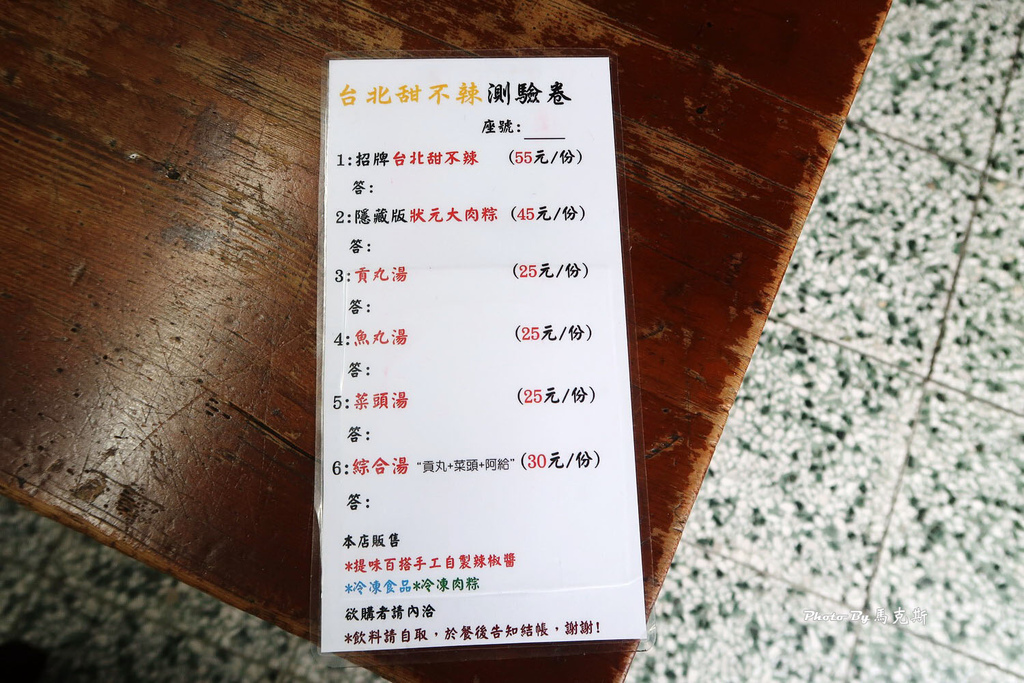 台北甜不辣測驗卷
座號:____
1:招牌台北甜不辣 (55元/份)
答:
2:隱藏版狀元大肉粽 (45元/份)
答:
3:貢丸湯 (25元/份)
答:
4:魚丸湯 (25元/份)
答:
5:菜頭湯 (25元/份)
答:
6:綜合湯 “貢丸+菜頭+阿給” (30元/份)
答:
本店販售
*提味百搭手工自製辣椒醬
*冷凍食品*冷凍肉粽
欲購者請內洽
*飲料請自取，於餐後告知結帳，謝謝!
Photo By 馬克斯